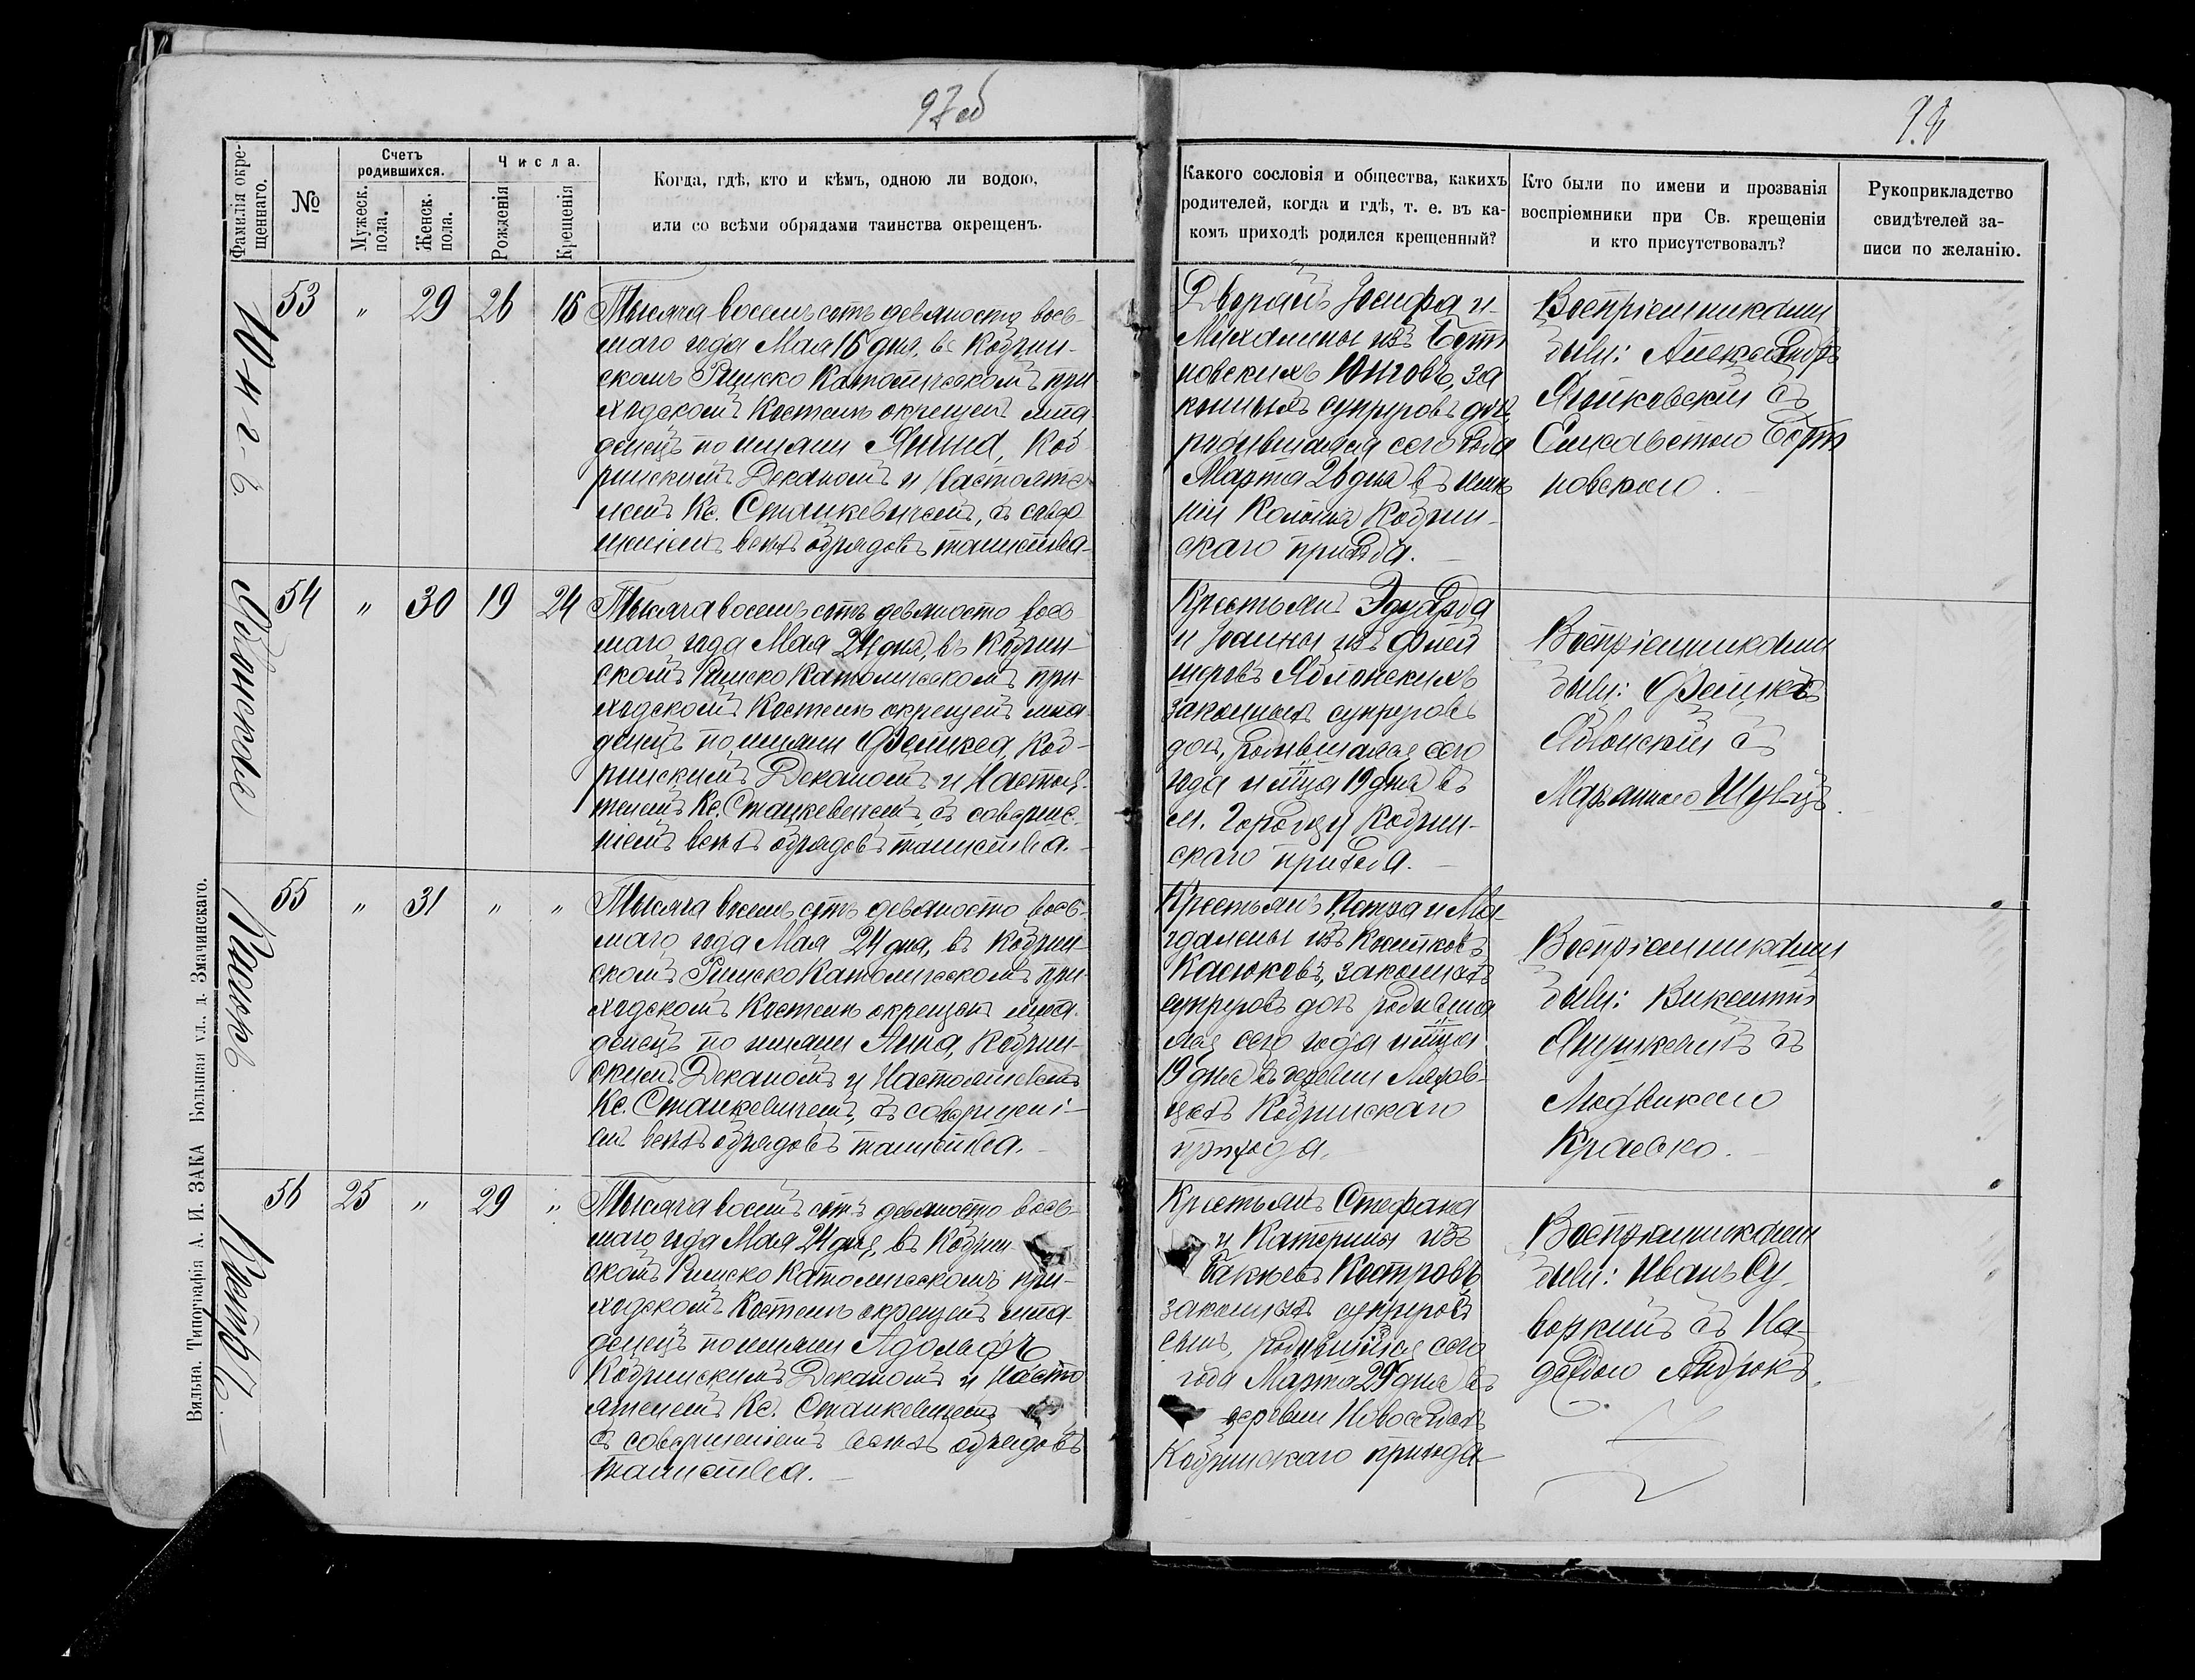 97об
98
Фамилія окре-
щеннаго.
№
Счетъ
родившихся.
Мужеск.
пола.
Женск.
пола.
Числа.
Рожденія
Крещенія
Когда, гдѣ, кто и кѣмъ, одною ли водою,
или со всѣми обрядами таинства окрещенъ.
Какого сословія и общества, какихъ
родителей, когда и гдѣ, т. е. въ ка-
комъ приходѣ родился крещенный?
Кто были по имени и прозванія
воспріемники при Св. крещеніи
и кто присутствовалъ?
Рукоприкладство
свидѣтелей за-
писи по желанію.
Юнгъ
53 " 29 26 16
Тысяча восемьсотъ девяносто вось-
маго года Мая 16 дня, въ Кобрин-
скомъ Римско Католическомъ при-
ходскомъ Костелѣ окрещенъ мла-
денецъ по имени Янина, Коб-
ринскимъ Деканомъ и Настояте-
лемъ Кс. Станкевичемъ, съ совер-
шеніемъ всѣхъ обрядовъ таинства
Дворянъ Іосифа и
Михалины изъ Борт
новскихъ Юнговъ, за
конныхъ супруговъ дочь,
родившаяся сего года
Марта 26 дня въ имѣ
ніи Кобрин-
скаго прихода.
Воспріемниками
были: Александръ
съ
Елисаветою Борт
новскою.
Яблонская
54 " 30 19 24
Тысяча восемьсотъ девяносто вось
маго года Мая 24 дня, въ Кобрин-
скомъ Римско Католическомъ при-
ходскомъ Костелѣ окрещенъ мла-
денецъ по имени Феликса, Коб-
ринскимъ Деканомъ и Настоя-
телемъ Кс. Станкевичемъ, съ соверше-
ніемъ всѣхъ обрядовъ таинства.
Крестьянъ Эдуарда
и Іоанны изъ Флей
шеровъ Яблонскихъ
законныхъ супруговъ
дочь, родившаяся сего
года и м-ца 19 дня въ
м. Городцѣ Кобрин-
скаго прихода.
Воспріемниками
были: Феликсъ
Яблонскій съ
Марьянною Шульцъ.
Касюкъ
55 " 31 " "
Тысяча восемьсотъ девяносто вось-
маго года Мая 24 дня, въ Кобрин-
скомъ Римско Католическомъ при-
ходскомъ Костелѣ окрещенъ мла-
денецъ по имени Анна, Кобрин-
скимъ Деканомъ и Настоятелемъ
Кс. Станкевичемъ, съ совершені-
емъ всѣхъ обрядовъ таинства.
Крестьянъ Петра и Ма-
гдалены изъ
Касюковъ, законныхъ
супруговъ дочь родивша
яся сего года и м-ца
19 дня въ деревни Ляхов-
цахъ Кобринскаго
прихода.
Воспріемниками
были: Викентій
Янушкевичъ съ
Людвикою
Краевско.
Костръ
56 25 " 29 "
Тысяча восемьсотъ девяносто вось-
маго года Мая 24 дня, въ Кобрин-
скомъ Римско Католическомъ при-
ходскомъ Костелѣ окрещенъ мла-
денецъ по имени Адольфъ
Кобринскимъ Деканомъ и Насто
ятелемъ Кс. Станкевичемъ
съ совершеніемъ всѣхъ обрядовъ
таинства.
Крестьянъ Стефана
и Катерины изъ
Костровъ
законныхъ супруговъ
сынъ, родившійся сего
года Марта 29 дня въ
деревни Новоселкахъ
Кобринскаго прихода
Воспріемниками
были: Иванъ Су-
воркинъ съ На-
деждою
Вильна. Типографія А. И. ЗАКА Большая ул., д. Змачинскаго.